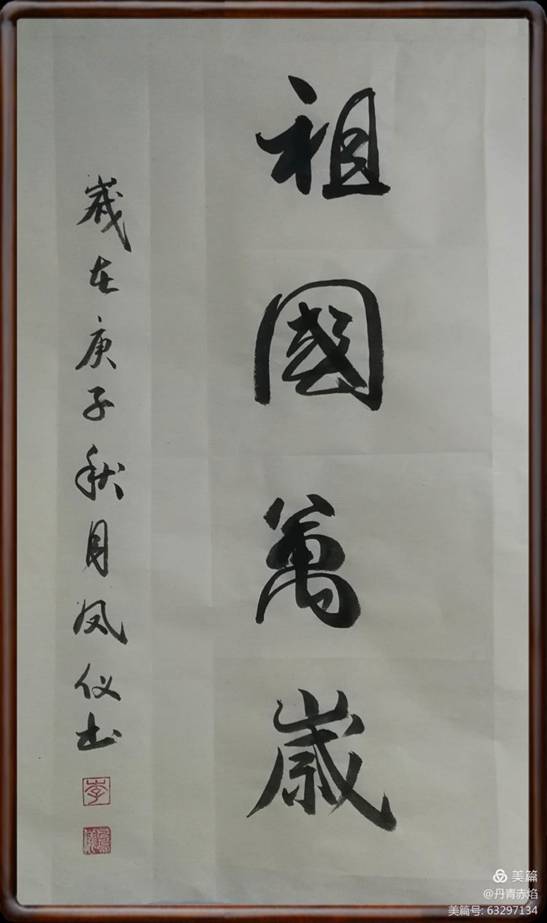 祖國萬歲
歲在庚子秋月凤仪书
美篇
@丹青赤焰
美篇号: 63297134